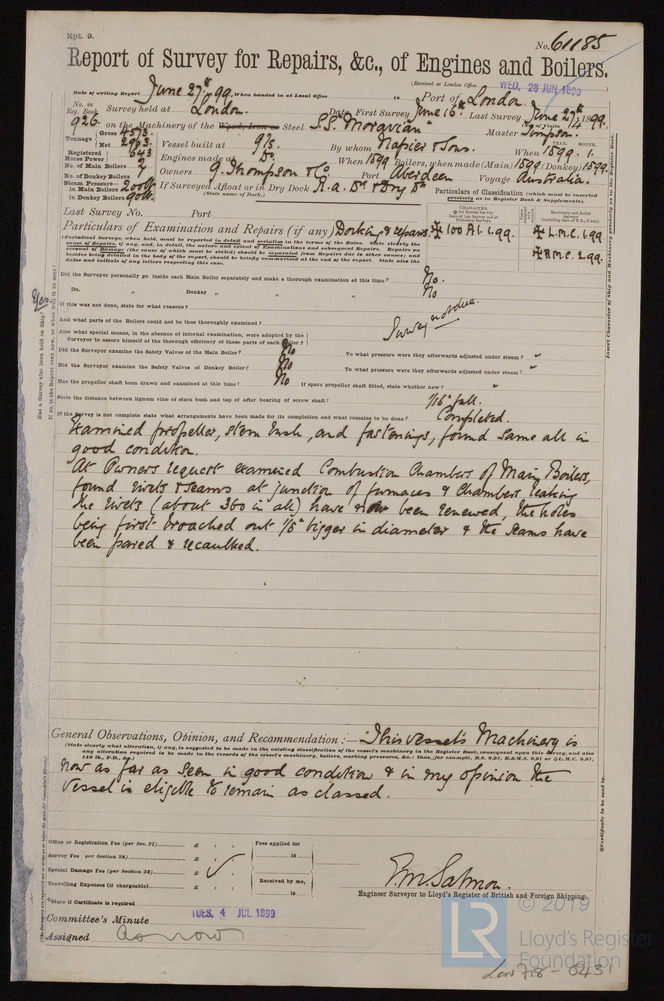 Rpt. 9.
No. 61185
Report of Survey for Repairs, &c., of Engines and Boilers.
(Received at London Office WED. 28 JUN 1899
Date of writing Report June 27th 99. When handed in at Local Office 18 Port of London.
No. in Reg. Book Survey held at London. Date, First Survey June 16th Last Survey June 27th 1899.
926 on the Machinery of the Wood, Iron or Steel S.S. "Moravian" Master Simpson.
Tonnage Gross 4573. Net 2963. Vessel built at G/s. By whom Napier & Sons. When 1899. 1.
Registered Horse Power 643 Engines made at Do. When 1899 Boilers, when made (Main) 1899 (Donkey) 1899.
No. of Main Boilers 2 Owners G. Thompson & Co. Port Aberdeen Voyage Australia.
No. of Donkey Boilers
Steam Pressure in Main Boilers 200 lb If Surveyed Afloat or in Dry Dock R.a. Dk & Dry Dk
in Donkey Boilers 90 lb. (State name of Dock.)
Particulars of Classification (which must be inserted precisely as in Register Book & Supplements).
Last Survey No. Port
Particulars of Examination and Repairs (if any) Docking & repairs.
✠ 100 A1. 1.99. ✠ L.M.C. 1.99
✠ B.M.C. 2.99.
Did the Surveyor personally go inside each Main Boiler separately and make a thorough examination at this time? No.
Do. " " Donkey " " " " No
If this was not done, state for what reasons? Survey not due.
And what parts of the Boilers could not be thus thoroughly examined?
Also what special means, in the absence of internal examination, were adopted by the Surveyor to assure himself of the thorough efficiency of those parts of each Boiler?
Did the Surveyor examine the Safety Valves of the Main Boiler? No To what pressure were they afterwards adjusted under steam? "
Did the Surveyor examine the Safety Valves of Donkey Boiler? No To what pressure were they afterwards adjusted under steam? "
Has the propeller shaft been drawn and examined at this time? No If spare propeller shaft fitted, state whether new? "
State the distance between lignum vitæ of stern bush and top of after bearing of screw shaft? 1/16" full.
If the Survey is not complete state what arrangements have been made for its completion and what remains to be done? Completed.
Examined propeller, stern bush, and fastenings, found same all in
good condition.
At Owners request examined Combustion Chambers of Main Boilers,
found rivets & seams at junction of furnaces & Chambers leaking
the rivets (about 360 in all) have now been renewed, the holes
being first broached out 1/8" bigger in diameter & the seams have
been pared & recaulked.
General Observations, Opinion, and Recommendation:— This vessel's Machinery is
now as far as seen in good condition & in my opinion the
vessel is eligible to remain as classed.
Office or Registration Fee (per Sec. 27) £ : : Fees applied for
Survey Fee per Section 28) £ : : 18
Special Damage Fee (per Section 28) £ : : Received by me,
Travelling Expenses (if chargeable) £ : : 18
State if Certificate is required
E.M. Salmon.
Engineer Surveyor to Lloyd's Register of British and Foreign Shipping.
Committee's Minute TUES. 4 JUL 1899
Assigned as now
LR
© 2019
Lloyd's Register
Foundation
Lon 728 - 0431